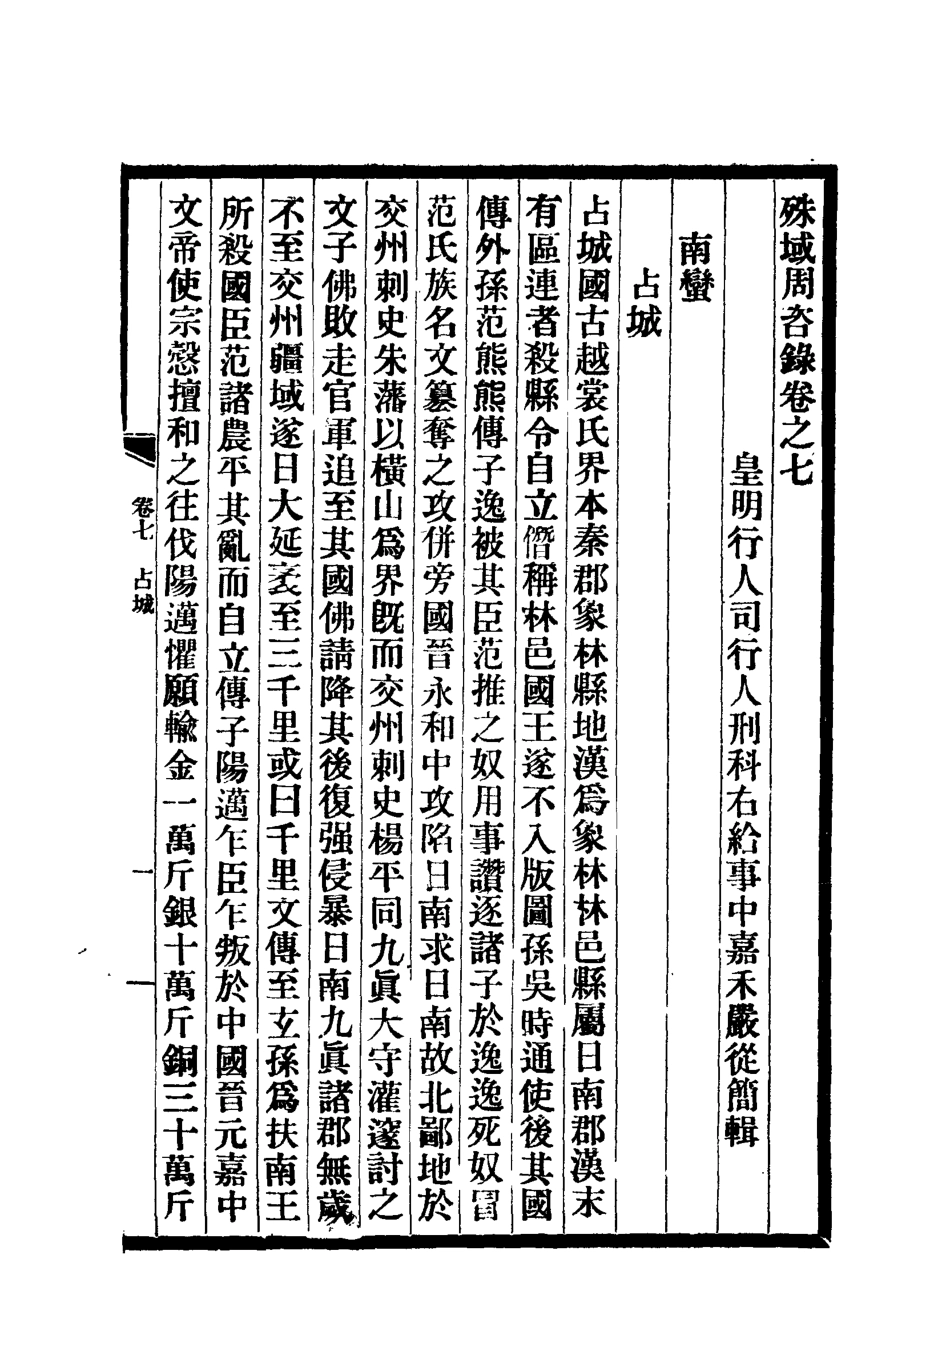 殊域周咨錄卷之七
皇明行人司行人刑科右給事中嘉禾嚴從簡輯
南蠻
占城
占城國古越裳氏界本秦郡象林縣地漢爲象林林邑縣屬日南郡漢末
有區連者殺縣令自立僭稱林邑國王遂不入版圖孫吳時通使後其國
傳外孫范熊熊傳子逸被其臣范推之奴用事讚逐諸子於逸逸死奴冒
范氏族名文篡奪之攻併旁國晉永和中攻陷日南求日南故北鄙地於
交州刺史朱藩以橫山爲界既而交州刺史楊平同九眞大守灌邃討之
文子佛敗走官軍追至其國佛請降其後復强侵暴日南九眞諸郡無歲
不至交州疆域遂日大延袤至三千里或曰千里文傳至玄孫爲扶南王
所殺國臣范諸農平其亂而自立傳子陽邁乍臣乍叛於中國晉元嘉中
文帝使宗慤擅和之往伐陽邁懼願輸金一萬斤銀十萬斤銅三十萬斤
卷七 占城
一